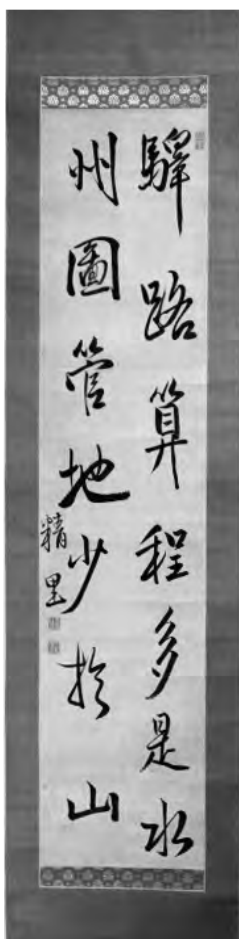 驛路算程多是水
州圖管地少於山
精里